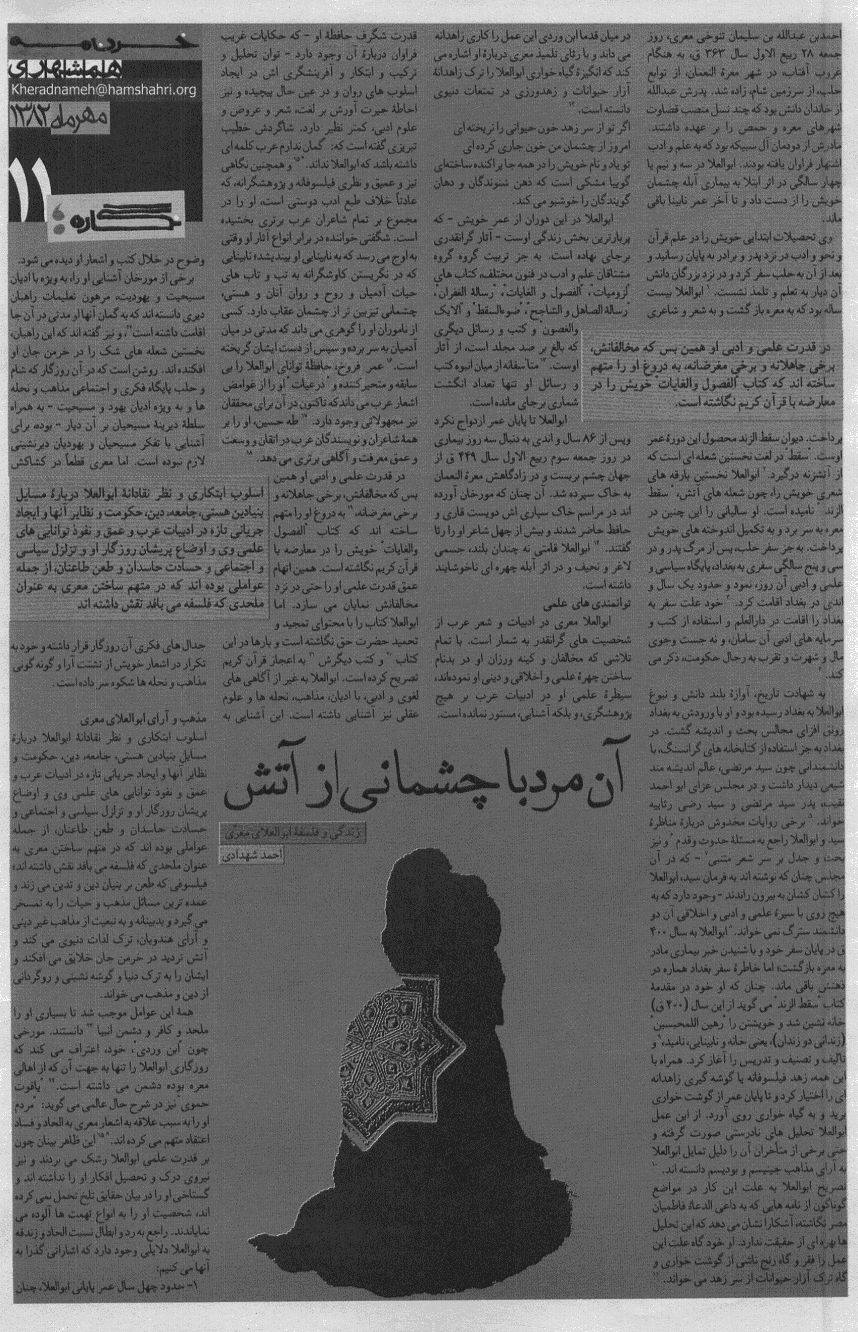 خردنامه
همشهری
Kheradnameh@hamshahri.org
مهرماه ۱۳۸۲
۱۱
آن مرد با چشمانی از آتش
زندگی و فلسفهٔ ابوالعلای معرّی
احمد شهدادی
احمدبن عبدالله بن سلیمان تنوخی معری، روز
جمعه ۲۸ ربیع الاول سال ۳۶۳ ق، به هنگام
غروب آفتاب، در شهر معرة النعمان، از توابع
حلب، از سرزمین شام، زاده شد. پدرش عبدالله
از خاندان دانش بود که چند نسل منصب قضاوت
شهرهای معره و حمص را بر عهده داشتند.
مادرش از دودمان آل سبیکه بود که به علم و ادب
اشتهار فراوان یافته بودند. ابوالعلا در سه و نیم یا
چهار سالگی در اثر ابتلا به بیماری آبله چشمان
خویش را از دست داد و تا آخر عمر نابینا باقی
ماند.
وی تحصیلات ابتدایی خویش را در علم قرآن
و نحو و ادب در نزد پدر و برادر به پایان رسانید و
بعد از آن به حلب سفر کرد و در نزد بزرگان دانش
آن دیار به تعلم و تلمذ نشست. ابوالعلا بیست
ساله بود که به معره باز گشت و به شعر و شاعری
پرداخت. دیوان سقط الزند محصول این دورهٔ عمر
اوست. "سقط" در لغت نخستین شعله ای است که
از آتشزنه درگیرد. ابوالعلا نخستین بارقه های
شعری خویش را، چون شعله های آتش، "سقط
الزند" نامیده است. او سالیانی را این چنین در
معره به سر برد و به تکمیل اندوخته های خویش
پرداخت. به جز سفر حلب، پس از مرگ پدر و در
سی و پنج سالگی سفری به بغداد، پایگاه سیاسی و
علمی و ادبی آن روز، نمود و حدود یک سال و
اندی در بغداد اقامت کرد. "خود علت سفر به
بغداد را اقامت در دارالعلم و استفاده از کتب و
سرمایه های ادبی آن سامان، و نه جست وجوی
مال و شهرت و تقرب به رجال حکومت، ذکر می
کند.
به شهادت تاریخ، آوازهٔ بلند دانش و نبوغ
ابوالعلا به بغداد رسیده بود و او با ورودش به بغداد
رونق افزای مجالس بحث و اندیشه گشت. در
بغداد به جز استفاده از کتابخانه های گرانسنگ، با
دانشمندانی چون سید مرتضی، عالم اندیشه مند
شیعی دیدار داشت و در مجلس عزای ابو احمد
نقیب، پدر سید مرتضی و سید رضی رثاییه
خواند. برخی روایات مخدوش دربارهٔ مناظرهٔ
سید و ابوالعلا راجع به مسئلهٔ حدوث و قدم و نیز
بحث و جدل بر سر شعر متنبی - که در آن
مجلس چنان که نوشته اند به فرمان سید، ابوالعلا
را کشان کشان به بیرون راندند - وجود دارد که به
هیچ روی با سیرهٔ علمی و ادبی و اخلاقی آن دو
دانشمند سترگ نمی خواند. ابوالعلا به سال ۴۰۰
ق در پایان سفر خود و با شنیدن خبر بیماری مادر
به معره بازگشت؛ اما خاطرهٔ سفر بغداد هماره در
ذهنش باقی ماند. چنان که او خود در مقدمهٔ
کتاب "سقط الزند" می گوید از این سال (۴۰۰ ق)
خانه نشین شد و خویشتن را "رهین المحبسین"
(زندانی دو زندان)، یعنی خانه و نابینایی، نامید، و
تألیف و تصنیف و تدریس را آغاز کرد. همراه با
این همه، زهد فیلسوفانه یا گوشه گیری زاهدانه
ای را اختیار کرد و تا پایان عمر از گوشت خواری
برید و به گیاه خواری روی آورد. از این عمل
ابوالعلا تحلیل های نادرستی صورت گرفته و
حتی برخی از متأخران آن را دلیل تمایل ابوالعلا
به آرای مذاهب جینیسم و بودیسم دانسته اند.
تصریح ابوالعلا به علت این کار در مواضع
گوناگون از نامه هایی که به داعی الدعاة فاطمیان
مصر نگاشته، آشکارا نشان می دهد که این تحلیل
ها بهره ای از حقیقت ندارد. او خود گاه علت این
عمل را فقر و گاه رنج ناشی از گوشت خواری و
گاه ترک آزار حیوانات از سر زهد می خواند. ۱۱
در قدرت علمی و ادبی او همین بس که مخالفانش،
برخی جاهلانه و برخی مغرضانه، به دروغ او را متهم
ساخته اند که کتاب "الفصول والغایات" خویش را در
معارضه با قرآن کریم نگاشته است.
در میان قدما ابن وردی این عمل را کاری زاهدانه
می داند و با رثای تلمیذ معری دربارهٔ او اشاره می
کند که انگیزهٔ گیاه خواری ابوالعلا را ترک زاهدانهٔ
آزار حیوانات و زهدورزی در تمتعات دنیوی
دانسته است. ۱۲
اگر تو از سر زهد خون حیوانی را نریخته ای
امروز از چشمان من خون جاری کرده ای
تو یاد و نام خویش را در همه جا پراکنده ساخته‌ای
گوییا مشکی است که ذهن شنوندگان و دهان
گویندگان را خوشبو می کند.
ابوالعلا در این دوران از عمر خویش - که
پربارترین بخش زندگی اوست - آثار گرانقدری
برجای نهاده است. به جز تربیت گروه گروه
مشتاقان علم و ادب در فنون مختلف، کتاب های
"لزومیات"، "الفصول و الغایات"، "رسالة الغفران"،
"رسالة الصاهل و الشاحج"، "ضوءالسقط" و "الایک
والغصون" و کتب و رسائل دیگری
که بالغ بر صد مجلد است، از آثار
اوست. متأسفانه از میان انبوه کتب
و رسائل او تنها تعداد انگشت
شماری برجای مانده است.
ابوالعلا تا پایان عمر ازدواج نکرد
و پس از ۸۶ سال و اندی به دنبال سه روز بیماری
در روز جمعه سوم ربیع الاول سال ۴۴۹ ق از
جهان چشم بربست و در زادگاهش معرة النعمان
به خاک سپرده شد. آن چنان که مورخان آورده
اند در مراسم خاک سپاری اش دویست قاری و
حافظ حاضر شدند و بیش از چهل شاعر او را رثا
گفتند. ۱۴ ابوالعلا قامتی نه چندان بلند، جسمی
لاغر و نحیف و در اثر آبله چهره ای ناخوشایند
داشته است.
توانمندی های علمی
ابوالعلا معری در ادبیات و شعر عرب از
شخصیت های گرانقدر به شمار است. با تمام
تلاشی که مخالفان و کینه ورزان او در بدنام
ساختن چهرهٔ علمی و اخلاقی و دینی او نموده‌اند،
سیطرهٔ علمی او در ادبیات عرب بر هیچ
پژوهشگری، و بلکه آشنایی، مستور نمانده است.
قدرت شگرف حافظهٔ او - که حکایات غریب
فراوان دربارهٔ آن وجود دارد - توان تحلیل و
ترکیب و ابتکار و آفرینشگری اش در ایجاد
اسلوب های روان و در عین حال پیچیده و نیز
احاطهٔ حیرت آورش بر لغت، شعر و عروض و
علوم ادبی، کمتر نظیر دارد. شاگردش خطیب
تبریزی گفته است که: "گمان ندارم عرب کلمه ای
داشته باشد که ابوالعلا نداند." ۱۵ و همچنین نگاهی
تیز و عمیق و نظری فیلسوفانه و پژوهشگرانه، که
عادتاً خلاف طبع ادب دوستی است، او را در
مجموع بر تمام شاعران عرب برتری بخشیده
است. شگفتی خواننده در برابر انواع آثار او وقتی
به اوج می رسد که به نابینایی او بیندیشد؛ نابینایی
که در نگریستن کاوشگرانه به تب و تاب های
حیات آدمیان و روح و روان آنان و هستی،
چشمانی تیزبین تر از چشمان عقاب دارد. کسی
از ناموران او را گوهری می داند که مدتی در میان
آدمیان به سر برده و سپس از دست ایشان گریخته
است. عمر فروخ، حافظهٔ توانای ابوالعلا را بی
سابقه و متحیر کننده و "درعیات" او را از غوامض
اشعار عرب می داند که تاکنون در آن برای محققان
نیز مجهولاتی وجود دارد. طه حسین، او را بر
همهٔ شاعران و نویسندگان عرب در اتقان و وسعت
و عمق معرفت و آگاهی برتری می دهد. ۱۸
در قدرت علمی و ادبی او همین
بس که مخالفانش، برخی جاهلانه و
برخی مغرضانه به دروغ او را متهم
ساخته اند که کتاب "الفصول
والغایات" خویش را در معارضه با
قرآن کریم نگاشته است. همین اتهام
عمق قدرت علمی او را حتی در نزد
مخالفانش نمایان می سازد. اما
ابوالعلا کتاب را با محتوای تمجید و
تحمید حضرت حق نگاشته است و بارها در این
کتاب و کتب دیگرش به اعجاز قرآن کریم
تصریح کرده است. ابوالعلا به غیر از آگاهی های
لغوی و ادبی، با ادیان، مذاهب، نحله ها و علوم
عقلی نیز آشنایی داشته است. این آشنایی به
وضوح در خلال کتب و اشعار او دیده می شود.
برخی از مورخان آشنایی او را، به ویژه با ادیان
مسیحیت و یهودیت، مرهون تعلیمات راهبان
دیری دانسته اند که به گمان آنها او مدتی در آن جا
اقامت داشته است، و نیز گفته اند که این راهبان،
نخستین شعله های شک را در خرمن جان او
افکنده‌اند. روشن است که در آن روزگار که شام
و حلب پایگاه فکری و اجتماعی مذاهب و نحله
ها و به ویژه ادیان یهود و مسیحیت - به همراه
سلطهٔ دیرینهٔ مسیحیان بر آن دیار - بوده، برای
آشنایی با تفکر مسیحیان و یهودیان دیرنشینی
لازم نبوده است. اما معری قطعاً در کشاکش
اسلوب ابتکاری و نظر نقادانهٔ ابوالعلا دربارهٔ مسایل
بنیادین هستی، جامعه، دین، حکومت و نظایر آنها و ایجاد
جریانی تازه در ادبیات عرب و عمق و نفوذ توانایی های
علمی وی و اوضاع پریشان روزگار او و تزلزل سیاسی
و اجتماعی و حسادت حاسدان و طعن طاعنان، از جمله
عواملی بوده اند که در متهم ساختن معری به عنوان
ملحدی که فلسفه می بافد نقش داشته اند
جدال های فکری آن روزگار قرار داشته و خود به
تکرار در اشعار خویش از تشتت آرا و گونه گونی
مذاهب و نحله ها شکوه سر داده است.
مذهب و آرای ابوالعلای معری
اسلوب ابتکاری و نظر نقادانهٔ ابوالعلا دربارهٔ
مسایل بنیادین هستی، جامعه، دین، حکومت و
نظایر آنها و ایجاد جریانی تازه در ادبیات عرب و
عمق و نفوذ توانایی های علمی وی و اوضاع
پریشان روزگار او و تزلزل سیاسی و اجتماعی و
حسادت حاسدان و طعن طاعنان، از جمله
عواملی بوده اند که در متهم ساختن معری به
عنوان ملحدی که فلسفه می بافد نقش داشته اند؛
فیلسوفی که طعن بر بنیان دین و تدین می زند و
عمده ترین مسائل مذهب و حیات را به تمسخر
می گیرد و بدبینانه و به تبعیت از مذاهب غیر دینی
و آرای هندویان، ترک لذات دنیوی می کند و
آتش تردید در خرمن جان خلایق می افکند و
ایشان را به ترک دنیا و گوشه نشینی و روگردانی
از دین و مذهب می خواند.
همهٔ این عوامل موجب شد تا بسیاری او را
ملحد و کافر و دشمن انبیا دانستند. مورخی
چون "ابن وردی"، خود، اعتراف می کند که
روزگاری ابوالعلا را تنها به جهت آن که از اهالی
معره بوده دشمن می داشته است. "یاقوت
حموی" نیز در شرح حال عالمی می گوید: "مردم
او را به سبب علاقه به اشعار معری به الحاد و فساد
اعتقاد متهم می کرده اند." این ظاهر بینان چون
بر قدرت علمی ابوالعلا رشک می بردند و نیز
نیروی درک و تحصیل افکار او را نداشته اند و
گستاخی او را در بیان حقایق تلخ تحمل نمی کرده
اند، شخصیت او را به انواع تهمت ها آلوده می
نمایاندند. راجع به رد و ابطال نسبت الحاد و زندقه
به ابوالعلا دلایلی وجود دارد که اشاراتی گذرا به
آنها می کنیم:
۱- حدود چهل سال عمر پایانی ابوالعلا، چنان